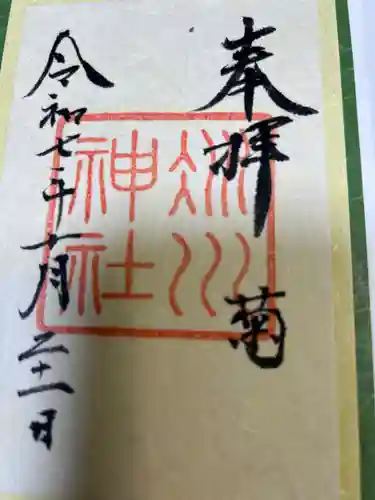 奉拝
菊
川
神社
令和七年十一月二十一日